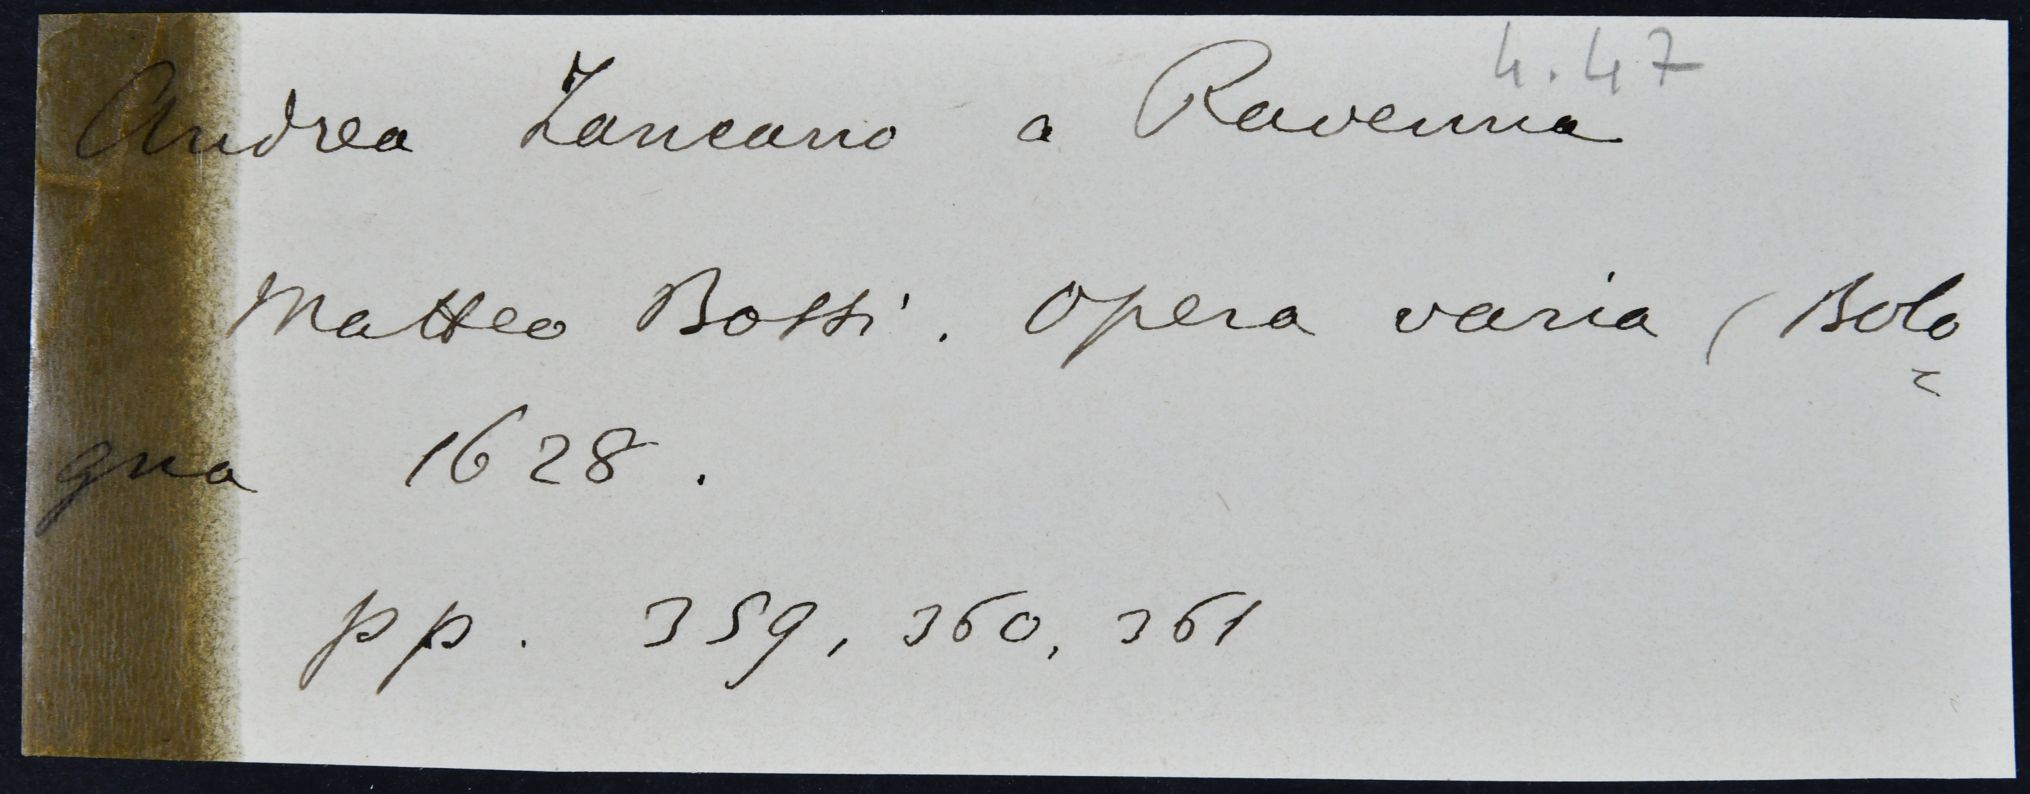 4.47
Andrea Zancano a Ravenna
Matteo Bossi. Opera varia (Bolo=
gna 1628.
pp. 359, 360, 361